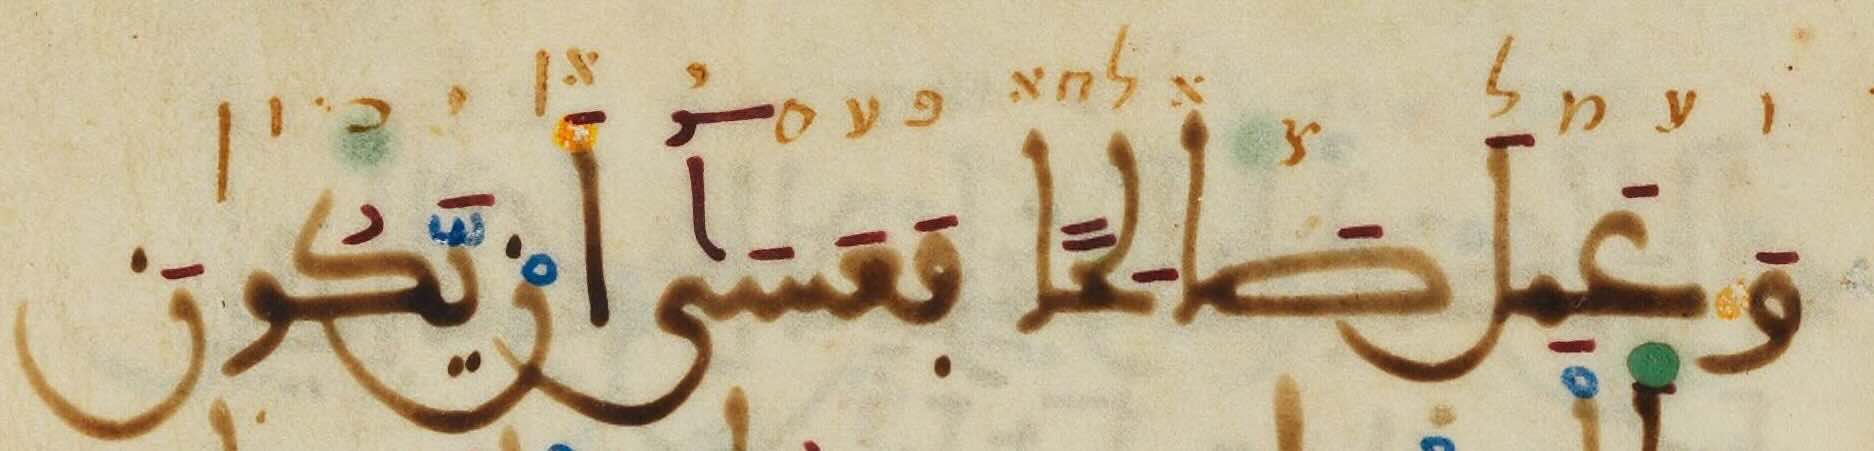 ו ע מ ל צ א לחא פ ע ס י אן י כ ו ן
وَعَمِلَ صَالِحًا فَعَسَىٰٓ أَنْ يَّكُونَ